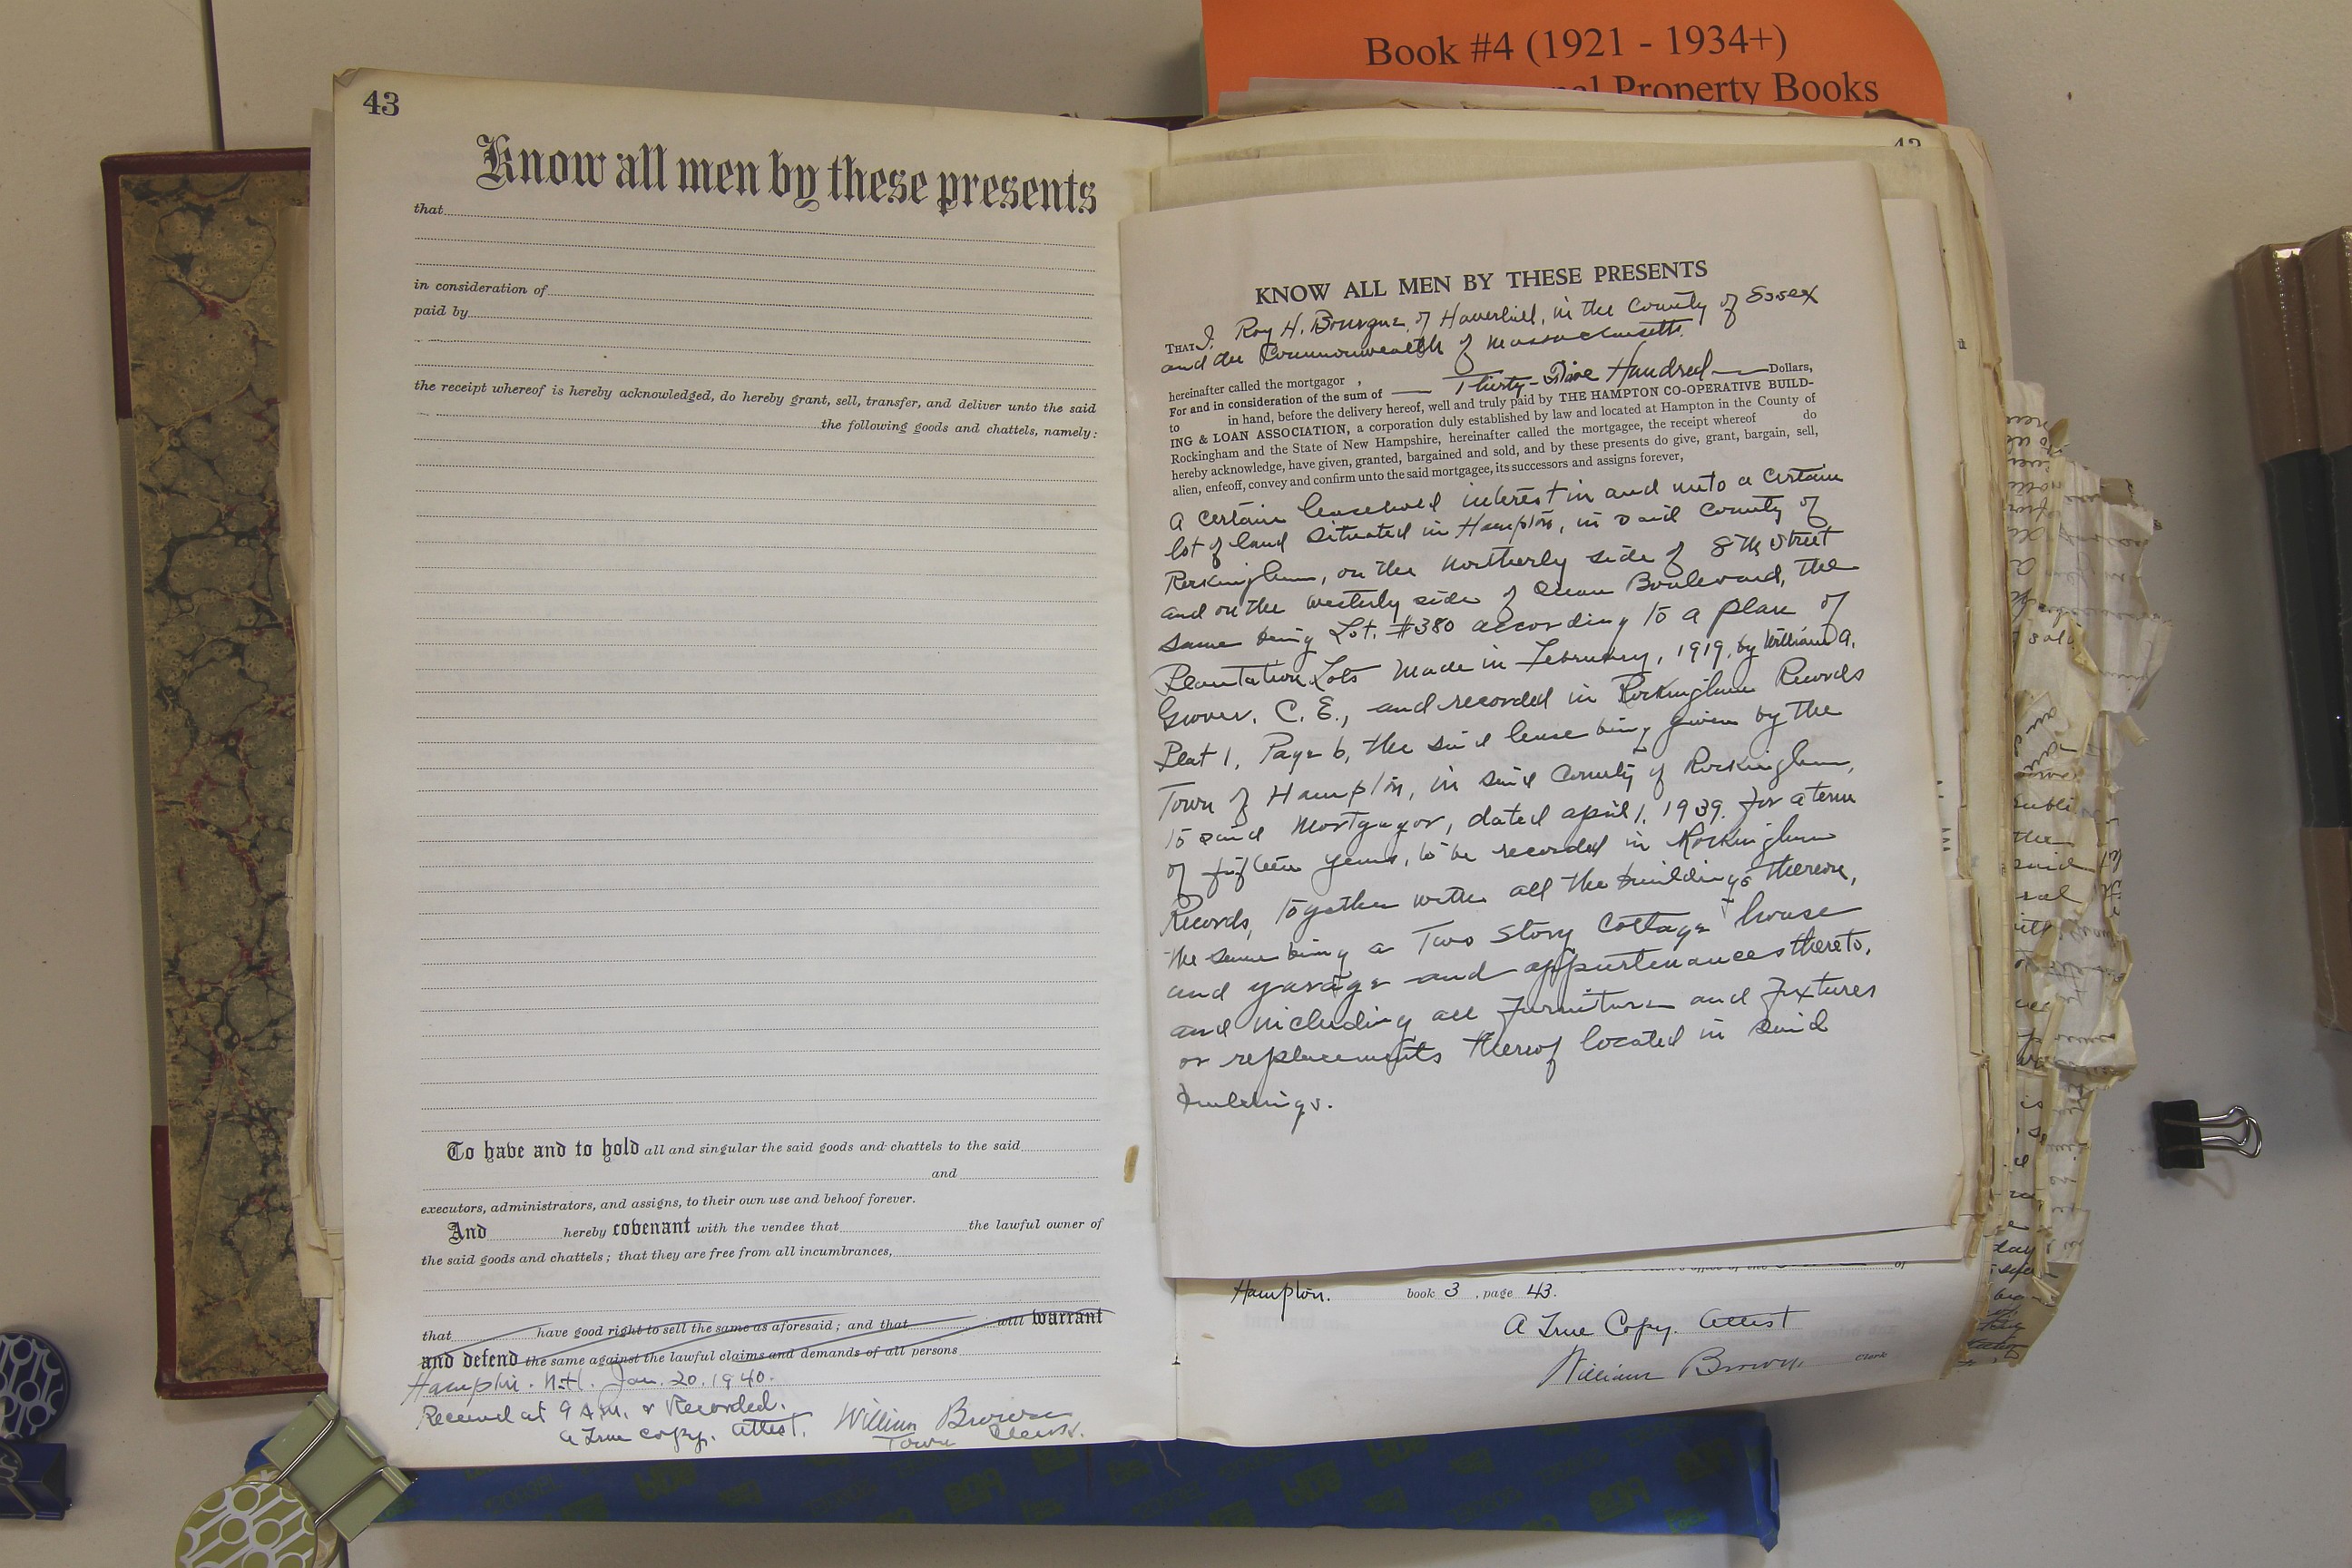 Book #4 (1921 - 1934+)
Property Books
43
Know all men by these presents
that
in consideration of
paid by
the receipt whereof is hereby acknowledged, do hereby grant, sell, transfer, and deliver unto the said
the following goods and chattels, namely:
To have and to hold all and singular the said goods and chattels to the said
and
executors, administrators, and assigns, to their own use and behoof forever.
And hereby covenant with the vendee that the lawful owner of
the said goods and chattels; that they are free from all incumbrances,
that have good right to sell the same as aforesaid; and that will warrant
and defend the same against the lawful claims and demands of all persons
Hampton. N.H. Jan. 20. 1940.
Received at 9 A.M. & Recorded.
a True copy. Attest. William Brown
Town Clerk.
KNOW ALL MEN BY THESE PRESENTS
THAT I, Roy H. Bourque, of Haverhill, in the County of Essex
and the Commonwealth of Massachusetts.
hereinafter called the mortgagor ,
For and in consideration of the sum of Thirty-Five Hundred Dollars,
to in hand, before the delivery hereof, well and truly paid by THE HAMPTON CO-OPERATIVE BUILD-
ING & LOAN ASSOCIATION, a corporation duly established by law and located at Hampton in the County of
Rockingham and the State of New Hampshire, hereinafter called the mortgagee, the receipt whereof do
hereby acknowledge, have given, granted, bargained and sold, and by these presents do give, grant, bargain, sell,
alien, enfeoff, convey and confirm unto the said mortgagee, its successors and assigns forever,
A certain leasehold interest in and unto a certain
lot of land situated in Hampton, in said County of
Rockingham, on the northerly side of 8th Street
and on the westerly side of Ocean Boulevard, the
same being Lot. #380 according to a plan of
Plantation Lots made in February, 1919, by William A.
Grover. C. E., and recorded in Rockingham Records
Plat 1, Page 6, the said lease being given by the
Town of Hampton, in said County of Rockingham,
to said Mortgagor, dated April 1, 1939. for a term
of fifteen years, to be recorded in Rockingham
Records, together with all the buildings thereon,
the same being a Two Story Cottage house
and garage and appurtenances thereto,
and including all furniture and fixtures
or replacements thereof located in said
buildings.
Hampton. book 3 , page 43.
A True Copy. Attest
William Brown, Clerk